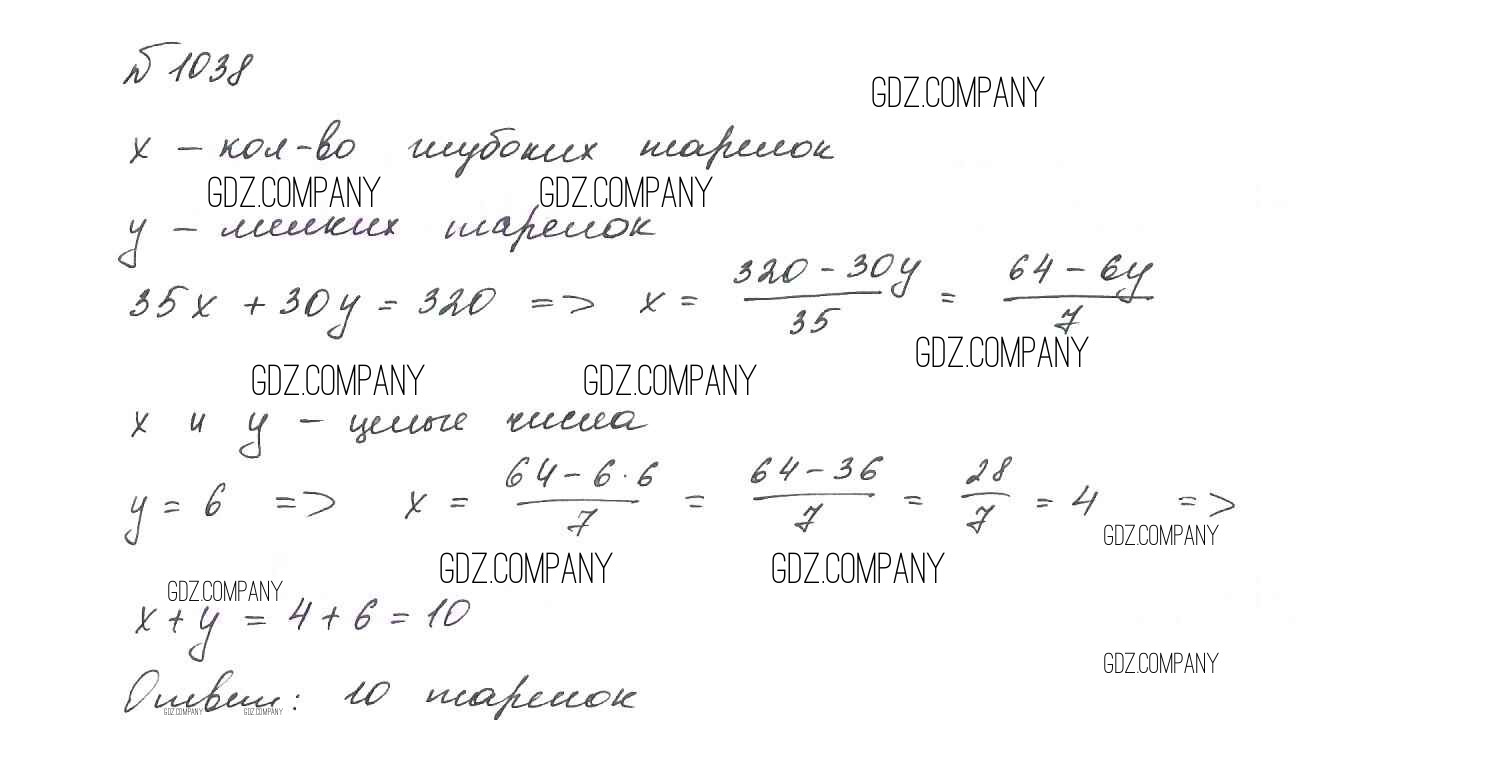 № 1038
GDZ.COMPANY
x – кол-во глубоких тарелок
GDZ.COMPANY GDZ.COMPANY
y – мелких тарелок
35x + 30y = 320 => x = (320 – 30y)/35 = (64 – 6y)/7
GDZ.COMPANY
GDZ.COMPANY GDZ.COMPANY
x и y – целые числа
y = 6 => x = (64 – 6·6)/7 = (64 – 36)/7 = 28/7 = 4 =>
GDZ.COMPANY
GDZ.COMPANY GDZ.COMPANY
GDZ.COMPANY
x + y = 4 + 6 = 10
GDZ.COMPANY
Ответ: 10 тарелок
GDZ.COMPANY GDZ.COMPANY